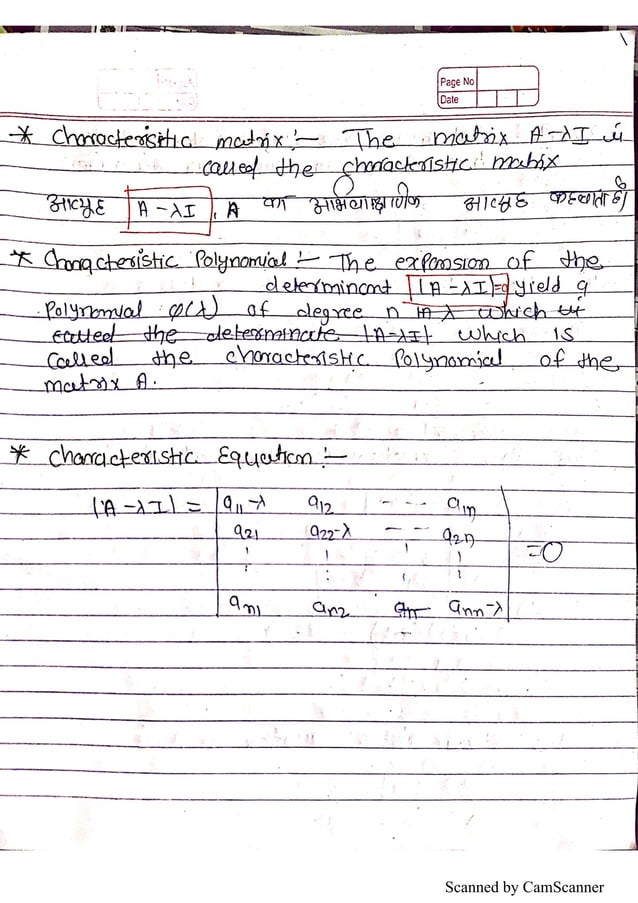 Page No
Date
* Characteristic matrix :- The matrix A-λI is
called the characteristic matrix
आव्यूह A-λI, A का अभिलाक्षणिक आव्यूह कहलाता है।
* Characteristic Polynomial :- The expansion of the
determinant |A-λI|=0 yield a
Polynomial φ(λ) of degree n in λ which is
called the determinate |A-λI| which is
called the characteristic Polynomial of the
matrix A.
* Characteristic Equation :-
|A-λI| = | a11-λ a12 - - - a1n |
a21 a22-λ - - a2n
=0
an1 an2 ann-λ
Scanned by CamScanner